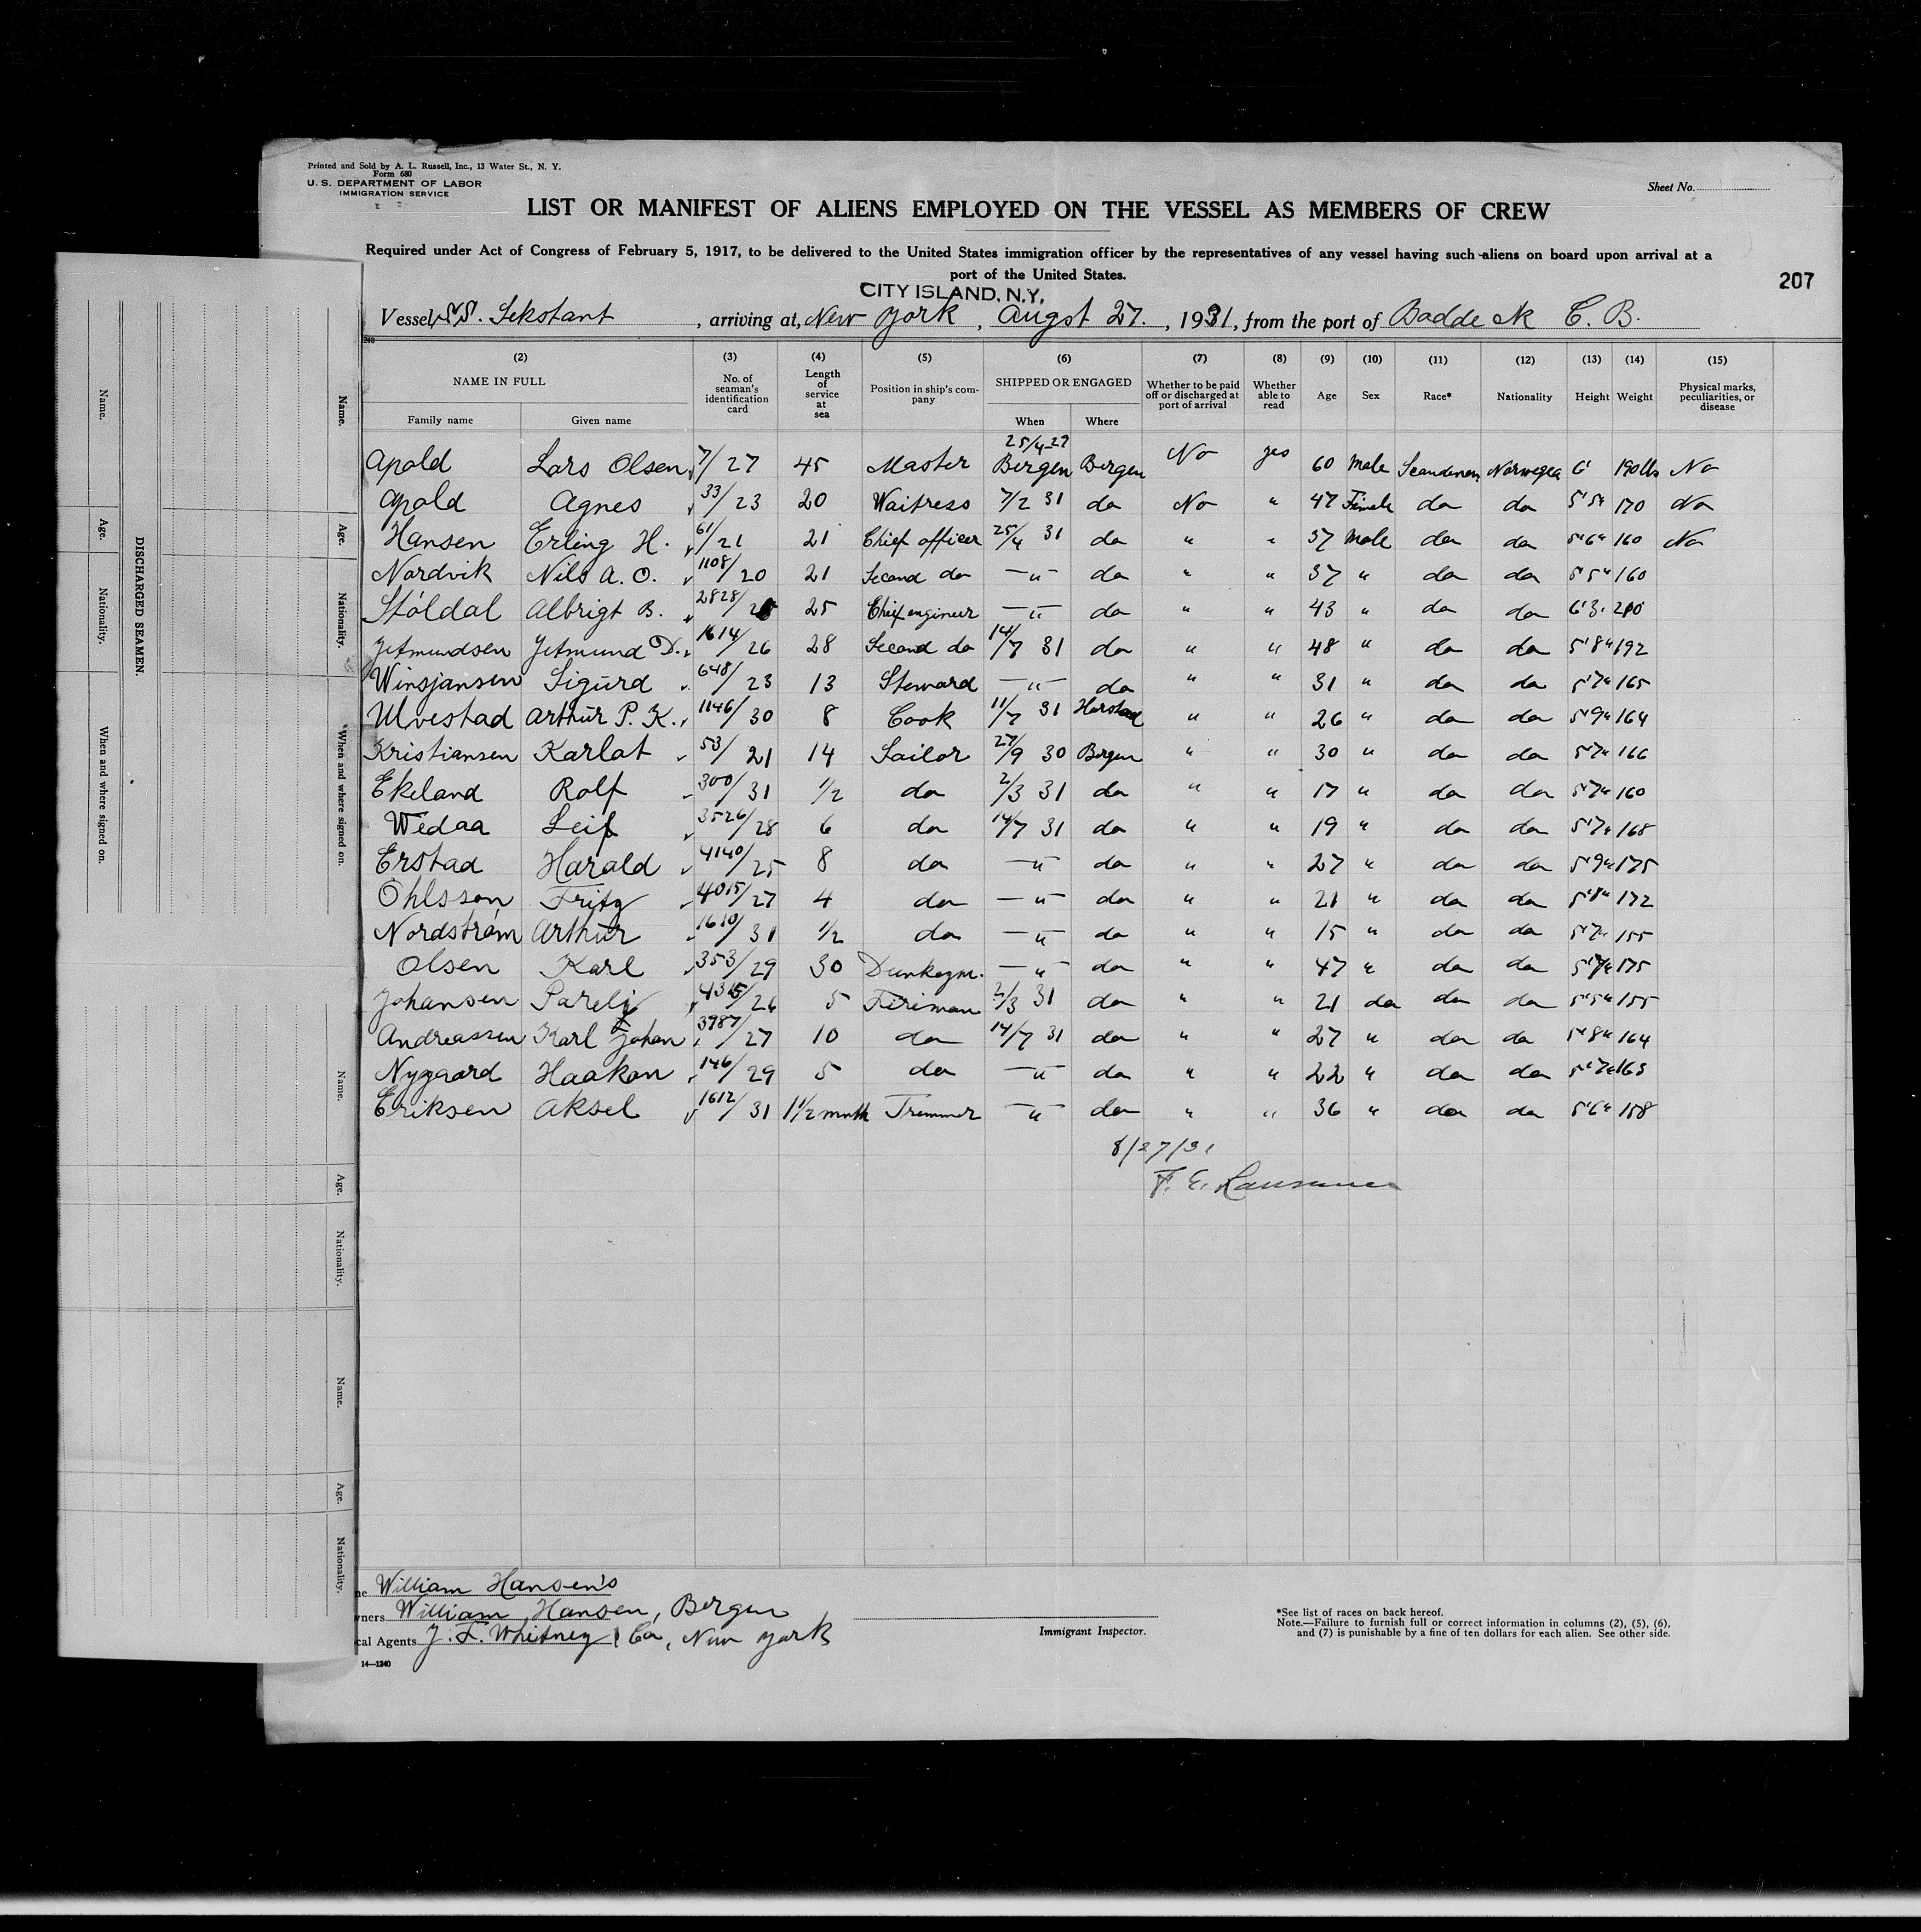 Printed and Sold by A. L. Russell, Inc., 13 Water St., N. Y.
Form 680
U. S. DEPARTMENT OF LABOR
IMMIGRATION SERVICE
Sheet No.
LIST OR MANIFEST OF ALIENS EMPLOYED ON THE VESSEL AS MEMBERS OF CREW
Required under Act of Congress of February 5, 1917, to be delivered to the United States immigration officer by the representatives of any vessel having such aliens on board upon arrival at a
port of the United States.
207
CITY ISLAND, N.Y.
Vessel SS. Sekstant, arriving at, New York, Augst 27., 1931, from the port of Baddeck C. B.
240
(2) (3) (4) (5) (6) (7) (8) (9) (10) (11) (12) (13) (14) (15)
NAME IN FULL No. of seaman's identification card Length of service at sea Position in ship's company SHIPPED OR ENGAGED Whether to be paid off or discharged at port of arrival Whether able to read Age Sex Race* Nationality Height Weight Physical marks, peculiarities, or disease
Family name Given name When Where
25/4-29
Apold Lars Olsen 7/27 45 Master Bergen Bergen No yes 60 Male Norwegea 6' 190 lbs No
Apold Agnes 33/23 20 Waitress 7/2 31 do No " 47 Female do do 5'5" 170 No
Hansen Erling H. 61/21 21 Chief officer 25/4 31 do " " 37 Male do do 5'6" 160 No
Nordvik Nils A. O. 1108/20 21 Second do —"— do " " 37 " do do 5'5" 160
Stöldal Albrigt B. 2828/ 25 Chief engineer —"— do " " 43 " do do 6'3" 210
Jetmundsen Jetmund D. 1614/26 28 Second do 14/7 31 do " " 48 " do do 5'8" 192
Winsjansen Sigurd 648/23 13 Steward —"— do " " 31 " do do 5'7" 165
Ulvestad Arthur P. K. 1146/30 8 Cook 11/7 31 Harstad " " 26 " do do 5'9" 164
Kristiansen Karlot 53/21 14 Sailor 27/9 30 Bergen " " 30 " do do 5'7" 166
Ekeland Rolf 300/31 1/2 do 2/3 31 do " " 17 " do do 5'7" 160
Wedaa Leif 3526/28 6 do 14/7 31 do " " 19 " do do 5'7" 168
Erstad Harald 4140/25 8 do —"— do " " 27 " do do 5'9" 175
Ohlsson Fritz 4015/27 4 do —"— do " " 21 " do do 5'8" 172
Nordstrøm Arthur 1610/31 1/2 do —"— do " " 15 " do do 5'7" 155
Olsen Karl 353/29 30 Dunkeym. —"— do " " 47 " do do 175
Johansen Pareli 4315/26 5 Fireman 2/3 31 do " " 21 do do do 5'5" 155
Andreassen Karl Johan 3987/27 10 do 14/7 31 do " " 27 " do do 5'8" 164
Nygaard Haakon 146/29 5 do —"— do " " 22 " do do 5'7" 163
Eriksen Aksel 1612/31 1 1/2 mnth Tremmer —"— do " " 36 " do do 5'6" 158
8/27/31
F. E.
William Hansen's
wners William Hansen, Bergen
cal Agents J. F. Whitney & Co, New York
14—1240
Immigrant Inspector.
*See list of races on back hereof.
Note.—Failure to furnish full or correct information in columns (2), (5), (6),
and (7) is punishable by a fine of ten dollars for each alien. See other side.
DISCHARGED SEAMEN.
Name.
Age.
Nationality.
When and where signed on.
Name.
Age.
Nationality.
*When and where signed on.
Name.
Age.
Nationality.
Name.
Age.
Nationality.